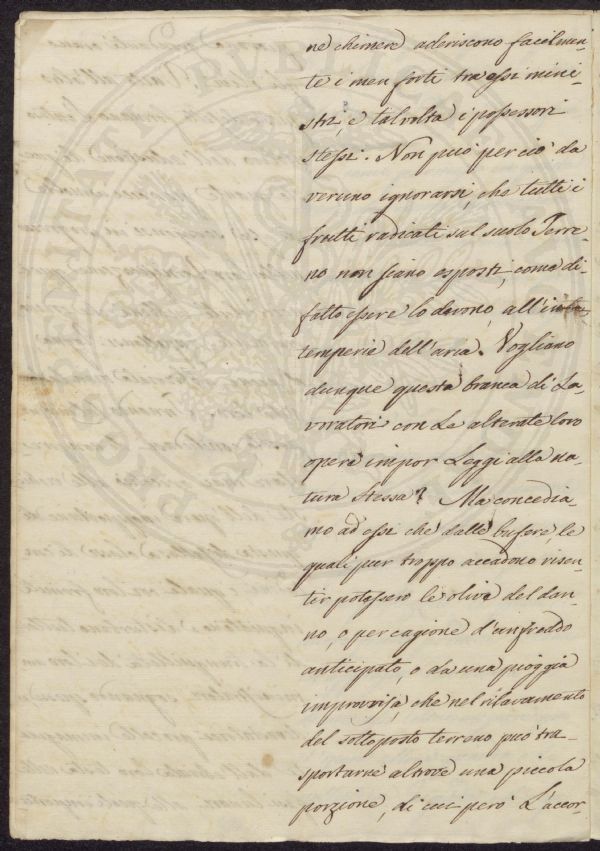 ne chimere aderiscono facilmen-
te i men forti tra essi mini-
stri, e talvolta i possessori
stessi. Non può per ciò da
veruno ignorarsi, che tutti i
frutti radicati sul suolo Terre-
no non siano esposti, come di
fatto essere lo devono, all'
temperie dell'aria. Vogliano
dunque questa branca di La-
voratori con Le alterate loro
opere impor Leggi alla na-
tura stessa? Ma concedia-
mo ad essi che dalle bufere, le
quali pur troppo accadono risen-
tir potessero le olive del dan-
no, o per cagione d'un freddo
anticipato, o da una pioggia
improvisa, che nel rilavamento
del sottoposto terreno può tra-
sportarne altrove una piccola
porzione, di cui però L'accor-